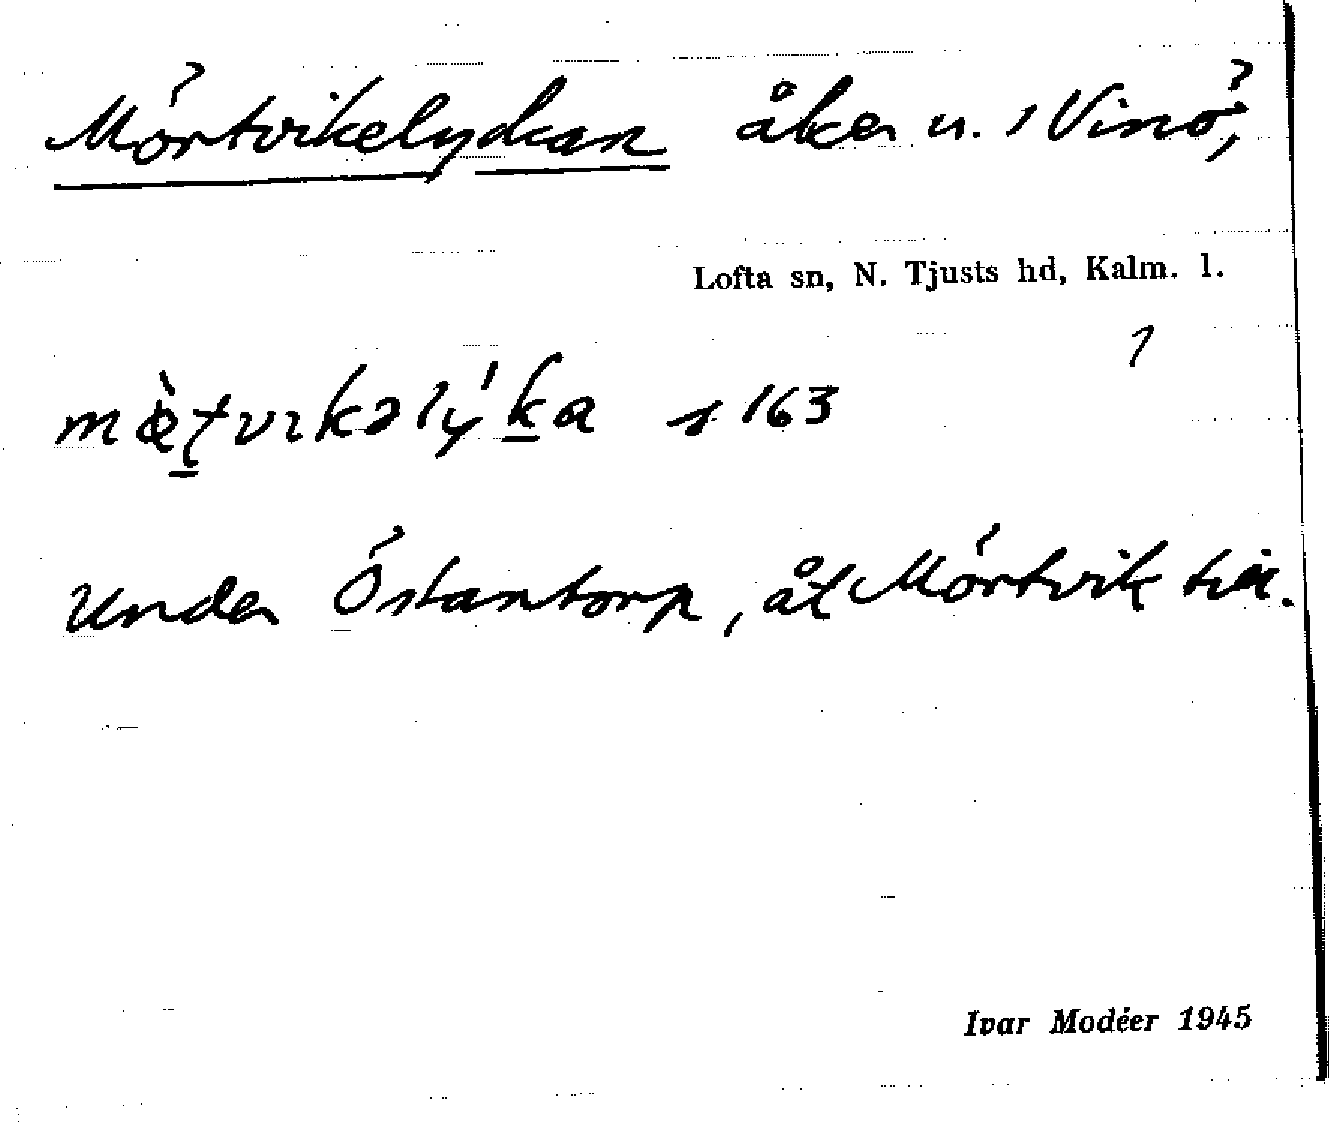 Mörtvikelyckan åker u. Vinö,
Lofta sn, N. Tjusts hd, Kalm. l.
1
s 163
Under Östantorp, åt Mörtvik till.
Ivar Modéer 1945